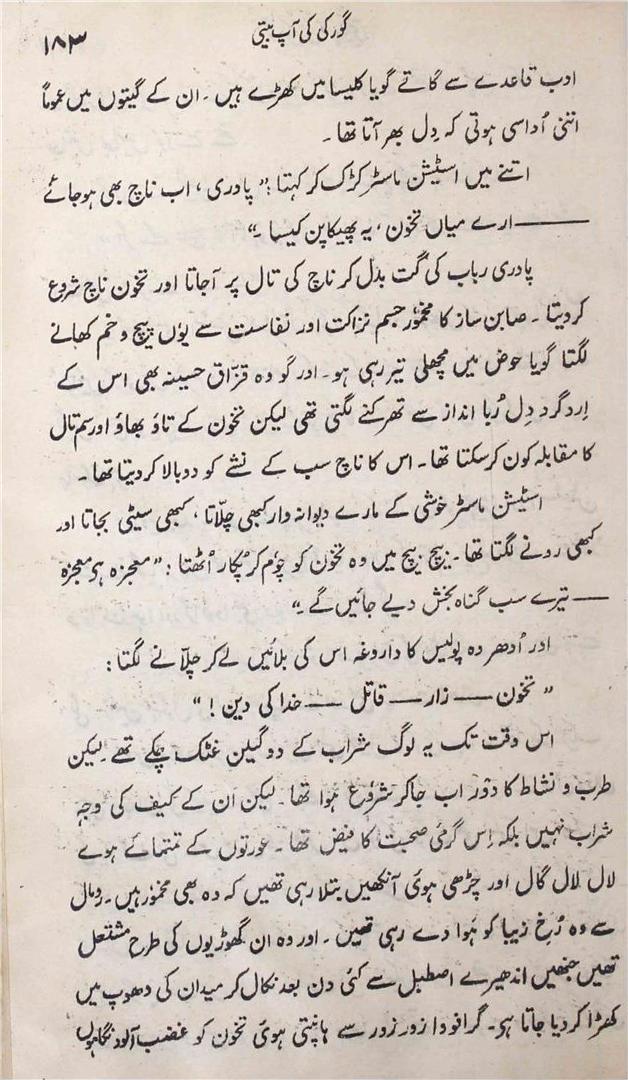 گورکی کی آپ بیتی
۱۸۳
ادب قاعدے سے گاتے گویا کلیسا میں کھڑے ہیں۔ ان کے گیتوں میں عموماً
اتنی اُداسی ہوتی کہ دِل بھر آتا تھا۔
اتنے میں اسٹیشن ماسٹر کڑک کر کہتا: ”پادری، اب ناچ بھی ہو جائے
—— ارے میاں تخون، یہ پھیکا پن کیسا۔“
پادری رباب کی گت بدل کر ناچ کی تال پر آجاتا اور تخون ناچ شروع
کردیتا۔ صابن ساز کا مخمُور جسم نزاکت اور نفاست سے یوں پیچ و خم کھانے
لگتا گویا حوض میں مچھلی تیر رہی ہو۔ اور گو وہ قزّاق حسینہ بھی اس کے
اِردگرد دِل رُبا انداز سے تھرکنے لگتی تھی لیکن تخون کے تاؤ بھاؤ اور سم تال
کا مقابلہ کون کرسکتا تھا۔ اس کا ناچ سب کے نشے کو دوبالا کردیتا تھا۔
اسٹیشن ماسٹر خوشی کے مارے دیوانہ وار کبھی چلّاتا، کبھی سیٹی بجاتا اور
کبھی رونے لگتا تھا۔ بیچ بیچ میں وہ تخون کو چوُم کر پُکار اُٹھتا: ”معجزہ ہی معجزہ
—— تیرے سب گناہ بخش دیے جائیں گے۔“
اور اُدھر وہ پولیس کا داروغہ اس کی بلائیں لے کر چلّانے لگتا:
”تخون —— زار —— قاتل —— خدا کی دین!“
اس وقت تک یہ لوگ شراب کے دو گیلن غٹک چکے تھے لیکن
طرب و نشاط کا دَور اب جا کر شروع ہوا تھا۔ لیکن ان کے کیف کی وجہ
شراب نہیں بلکہ اِس گرمئی صحبت کا فیض تھا۔ عورتوں کے تمتمائے ہوے
لال لال گال اور چڑھی ہوئی آنکھیں بتلا رہی تھیں کہ وہ بھی مخمُور ہیں۔ رومال
سے وہ رُخِ زیبا کو ہَوا دے رہی تھیں۔ اور وہ ان گھوڑیوں کی طرح مشتعل
تھیں جنھیں اندھیرے اصطبل سے کئی دن بعد نکال کر میدان کی دھوپ میں
کھڑا کردیا جاتا ہی۔ گرافووا زور زور سے ہانپتی ہوئی تخون کو غضب آلود نگاہوں